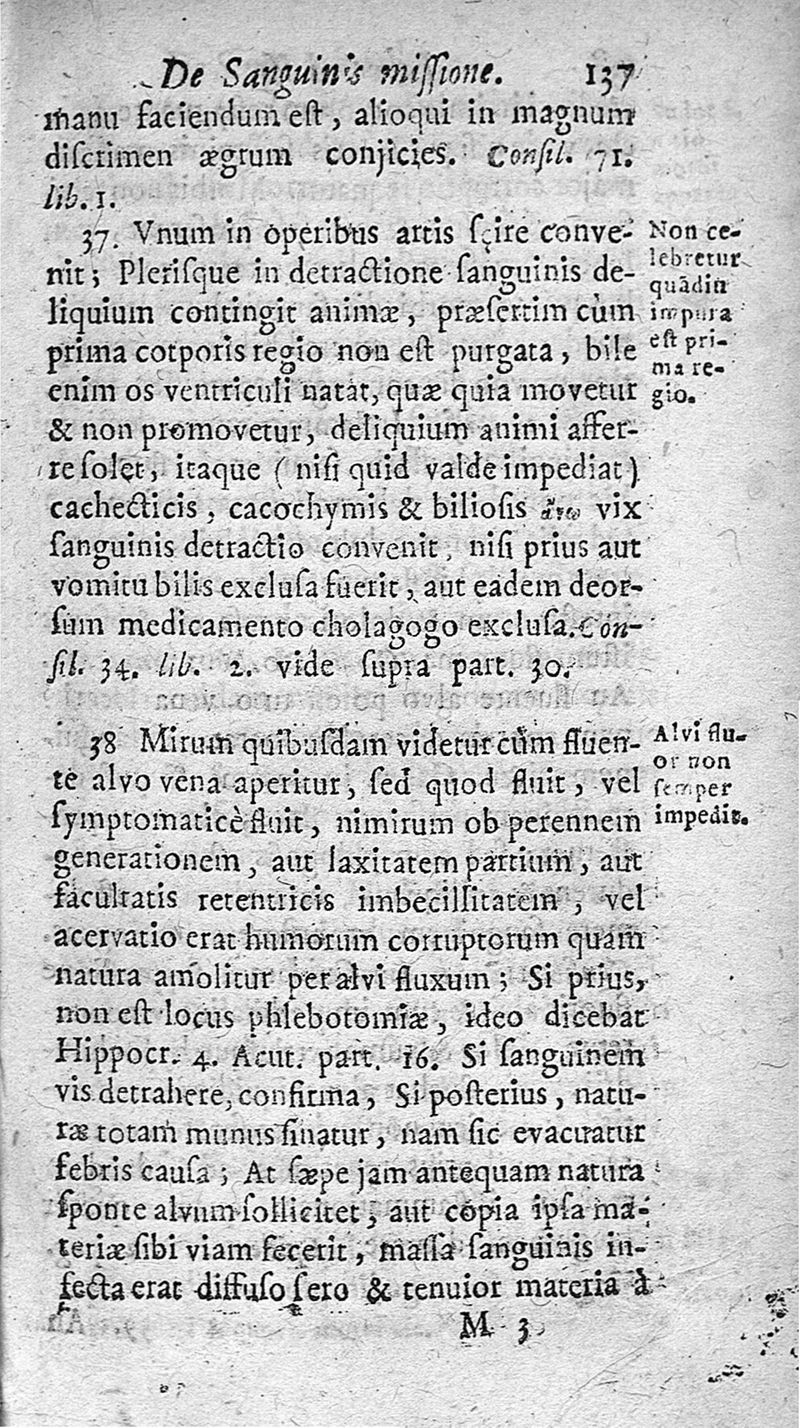 De Sanguinis missione. 137
manu faciendum est, alioqui in magnum
discrimen ægrum conjicies. Consil. 71.
lib. 1.
37. Vnum in operibus artis scire conve-
nit; Plerisque in detractione sanguinis de-
liquium contingit animæ, præsertim cùm
prima corporis regio non est purgata, bile
enim os ventriculi natat, quæ quia movetur
& non promovetur, deliquium animi affer-
re solet, itaque (nisi quid valde impediat)
cachecticis, cacochymis & biliosis ἄνω vix
sanguinis detractio convenit, nisi prius aut
vomitu bilis exclusa fuerit, aut eadem deor-
sum medicamento cholagogo exclusa. Con-
sil. 34. lib. 2. vide supra part. 30.
Non ce-
lebretur
quãdiu
impura
est pri-
ma re-
gio.
38 Mirum quibusdam videtur cùm fluen-
te alvo vena aperitur, sed quod fluit, vel
symptomaticè fluit, nimirum ob perennem
generationem, aut laxitatem partium, aut
facultatis retentricis imbecillitatem, vel
acervatio erat humorum corruptorum quam
natura amolitur per alvi fluxum; Si prius,
non est locus phlebotomiæ, ideo dicebat
Hippocr. 4. Acut. part. 16. Si sanguinem
vis detrahere, confirma, Si posterius, natu-
ræ totam munus sinatur, nam sic evacuatur
febris causa; At sæpe jam antequam natura
sponte alvum sollicitet, aut copia ipsa ma-
teriæ sibi viam fecerit, massa sanguinis in-
fecta erat diffuso sero & tenuior materia à
Alvi flu-
or non
semper
impedit.
M 3